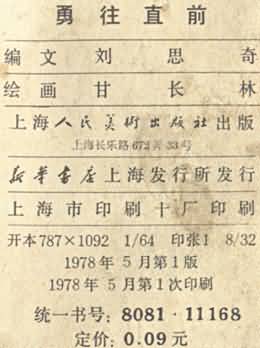 勇往直前
编文 刘思奇
绘画 甘长林
上海人民美术出版社出版
上海长乐路672弄33号
新华书店上海发行所发行
上海市印刷十厂印刷
开本787×1092 1/64 印张1 8/32
1978年5月第1版
1978年5月第1次印刷
统一书号：8081·11168
定价：0.09元